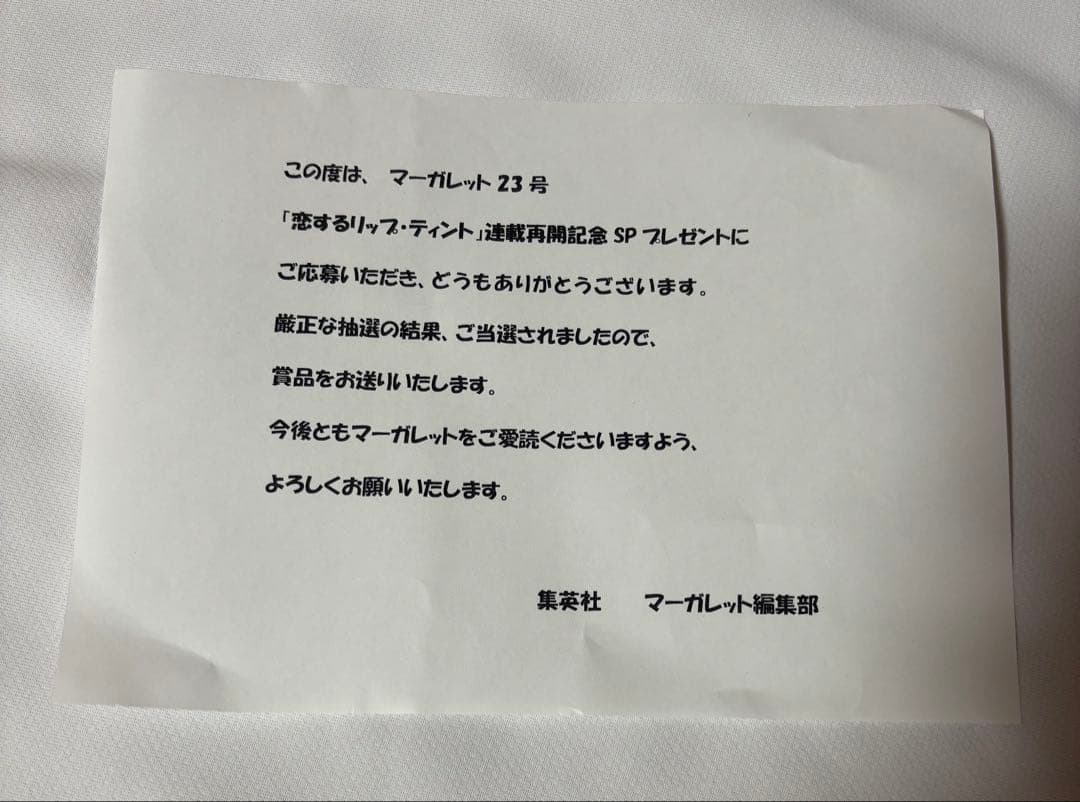 この度は、 マーガレット 23 号
「恋するリップ・ティント」連載再開記念 SP プレゼントに
ご応募いただき、どうもありがとうございます。
厳正な抽選の結果、ご当選されましたので、
賞品をお送りいたします。
今後ともマーガレットをご愛読くださいますよう、
よろしくお願いいたします。
集英社　　マーガレット編集部